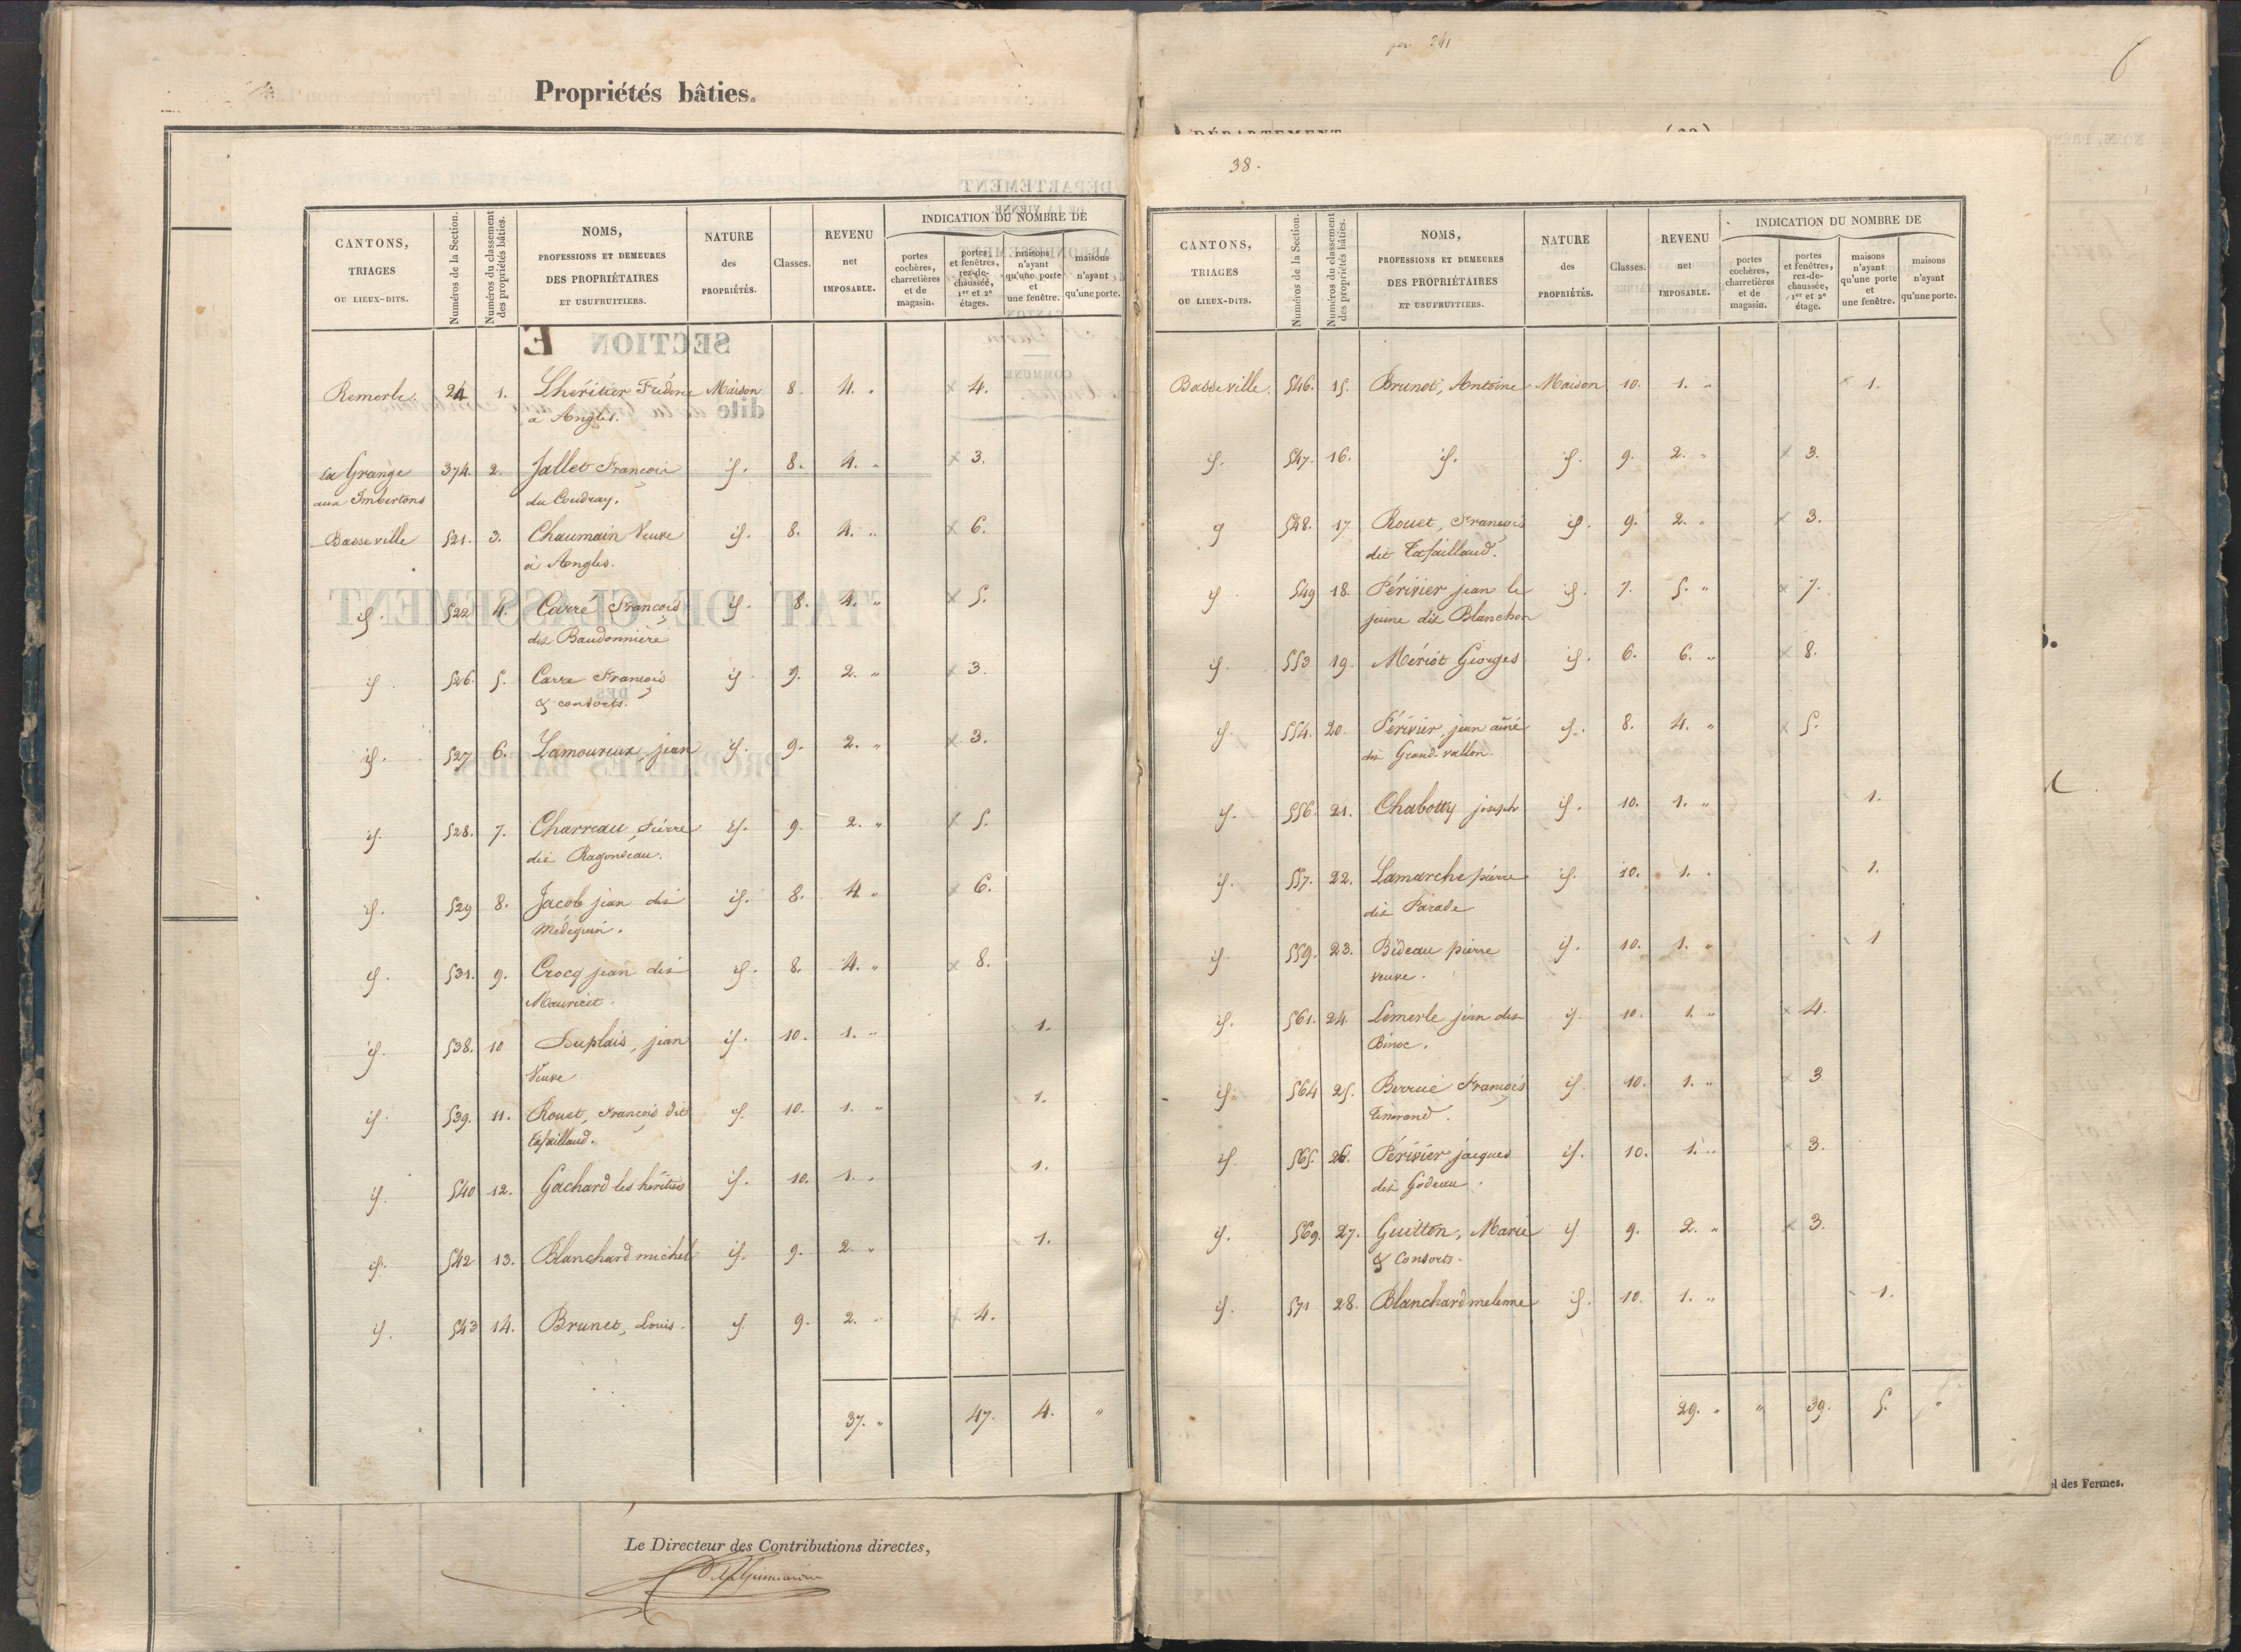 Propriétés bâties.
CANTONS,
TRIAGES
OU LIEUX-DITS.
Numéros de la Section.
Numéros du classement des propriétés bâties.
NOMS,
PROFESSIONS ET DEMEURES
DES PROPRIÉTAIRES
ET USUFRUITIERS.
NATURE
des
PROPRIÉTÉS.
Classes.
REVENU
net
IMPOSABLE.
INDICATION DU NOMBRE DE
portes cochères, charretières et de magasin.
portes et fenêtres, rez-de-chaussée, 1er et 2e étages.
maisons n'ayant qu'une porte et une fenêtre.
maisons n'ayant qu'une porte.
Remerle. 24 1. Lhéritier Frédéric Maison 8. 4. " × 4.
à Angles.
La Grange 374. 2. Jallet François id. 8. 4. " × 3.
aux Imbertons du Coudray.
Basseville 521. 3. Chaumain Veuve id. 8. 4. " × 6.
à Angles.
id. 522 4. Carré François id. 8. 4. " × 5.
dit Baudonnière
id. 526. 5. Carre François id. 9. 2. " × 3.
& consorts.
id. 527 6. Lamoureux, jean id. 9. 2. " × 3.
id. 528. 7. Charreau, Pierre id. 9. 2. " × 5.
dit Ragondeau.
id. 529 8. Jacob jean dit id. 8. 4. " × 6.
Médequin.
id. 531. 9. Crocq jean dit id. 8. 4. " × 8.
Mauricet.
id. 538. 10 Duplais, jean id. 10. 1. " 1.
Veuve
id. 539. 11. Rouet, François dit id. 10. 1. " 1.
Tafaillaud.
id. 540 12. Gachard les héritiers id. 10. 1. " 1.
id. 542 13. Blanchard michel id. 9. 2 " 1.
id. 543 14. Brunet, Louis. id. 9. 2. " × 4.
37. " 47. 4. "
Le Directeur des Contributions directes,
241
6
DÉPARTEMENT
38.
CANTONS,
TRIAGES
OU LIEUX-DITS.
Numéros de la Section.
Numéros du classement des propriétés bâties.
NOMS,
PROFESSIONS ET DEMEURES
DES PROPRIÉTAIRES
ET USUFRUITIERS.
NATURE
des
PROPRIÉTÉS.
Classes.
REVENU
net
IMPOSABLE.
INDICATION DU NOMBRE DE
portes cochères, charretières et de magasin.
portes et fenêtres, rez-de-chaussée, 1er et 2e étage.
maisons n'ayant qu'une porte et une fenêtre.
maisons n'ayant qu'une porte.
Basseville. 546. 15. Brunet, Antoine Maison 10. 1. " × 1.
id. 547. 16. id. id. 9. 2. " × 3.
id 548. 17. Rouet, François id. 9. 2. " × 3.
dit Tafaillaud.
id 549 18. Périvier jean le id. 7. 5. " × 7.
jeune dit Blanchon
id. 553 19. Mériot Georges. id. 6. 6. " × 8.
id. 554. 20. Périvier, jean ainé id. 8. 4. " × 5.
dit Grand-vallon.
id. 556. 21. Chabotty joseph id. 10. 1. " 1.
id. 557. 22. Lamarche pierre id. 10. 1. " 1.
dit Parade
id. 559. 23. Bideau pierre id. 10. 1. " 1
veuve.
id. 561. 24. Lemerle jean dit id. 10. 1. " × 4.
Binoc.
id. 564 25. Berrué François id. 10. 1. " × 3
id. 565. 26. Périvier jacques id. 10. 1. " × 3.
dit Godeau.
id. 569. 27. Guitton, Marie id. 9. 2. " × 3.
& Consorts.
id. 571 28. Blanchard id. 10. 1. " 1.
29. " " 39. 5. "
el des Fermes.